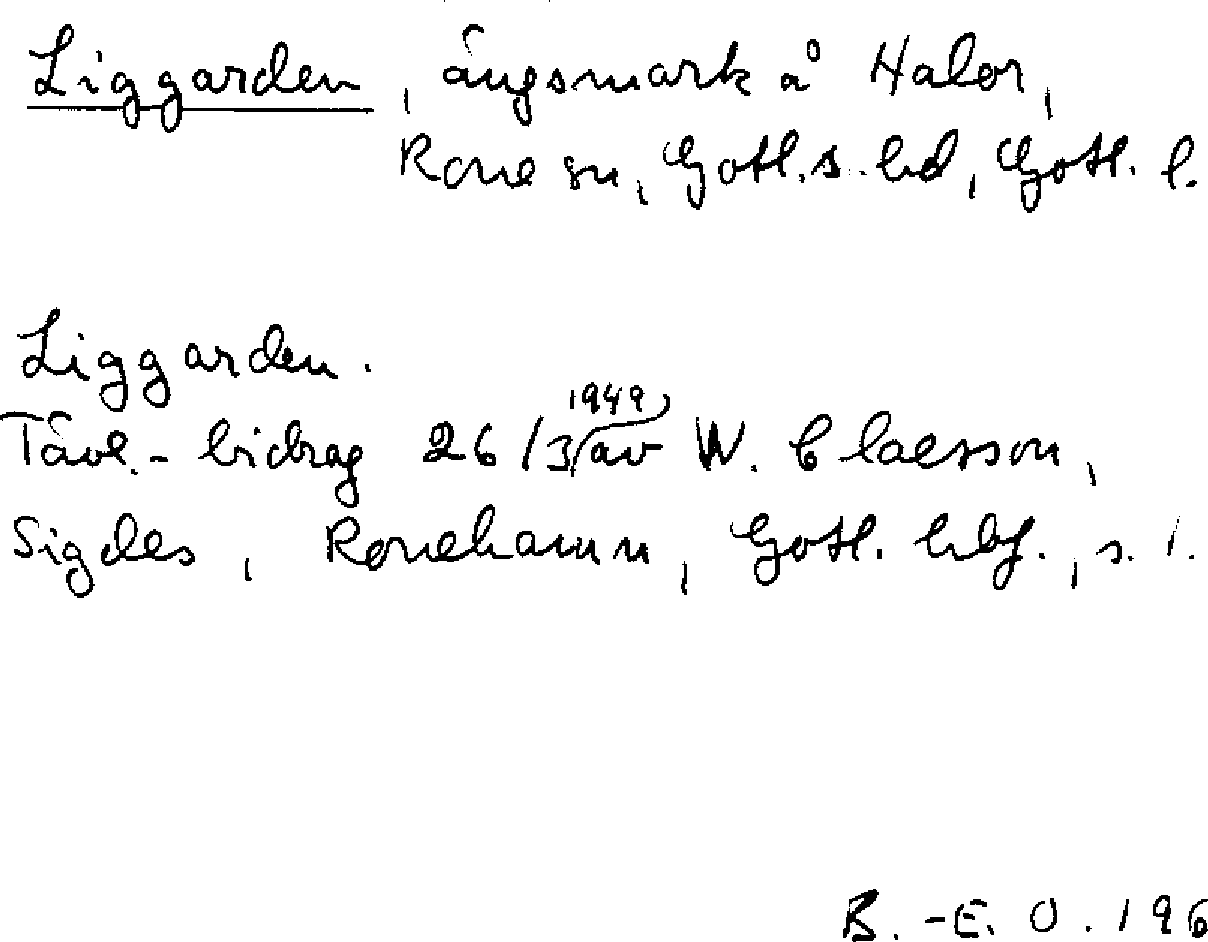 Liggarden, ängsmark å Halor,
Rone sn, Gotl. s. hd, Gotl. l.
Liggarden.
Tävl.- bidrag 26/3 1949 av W. Claesson,
Sigdes, Ronehamn, Gotl. hbf., s. 1.
B.-E. O. 196